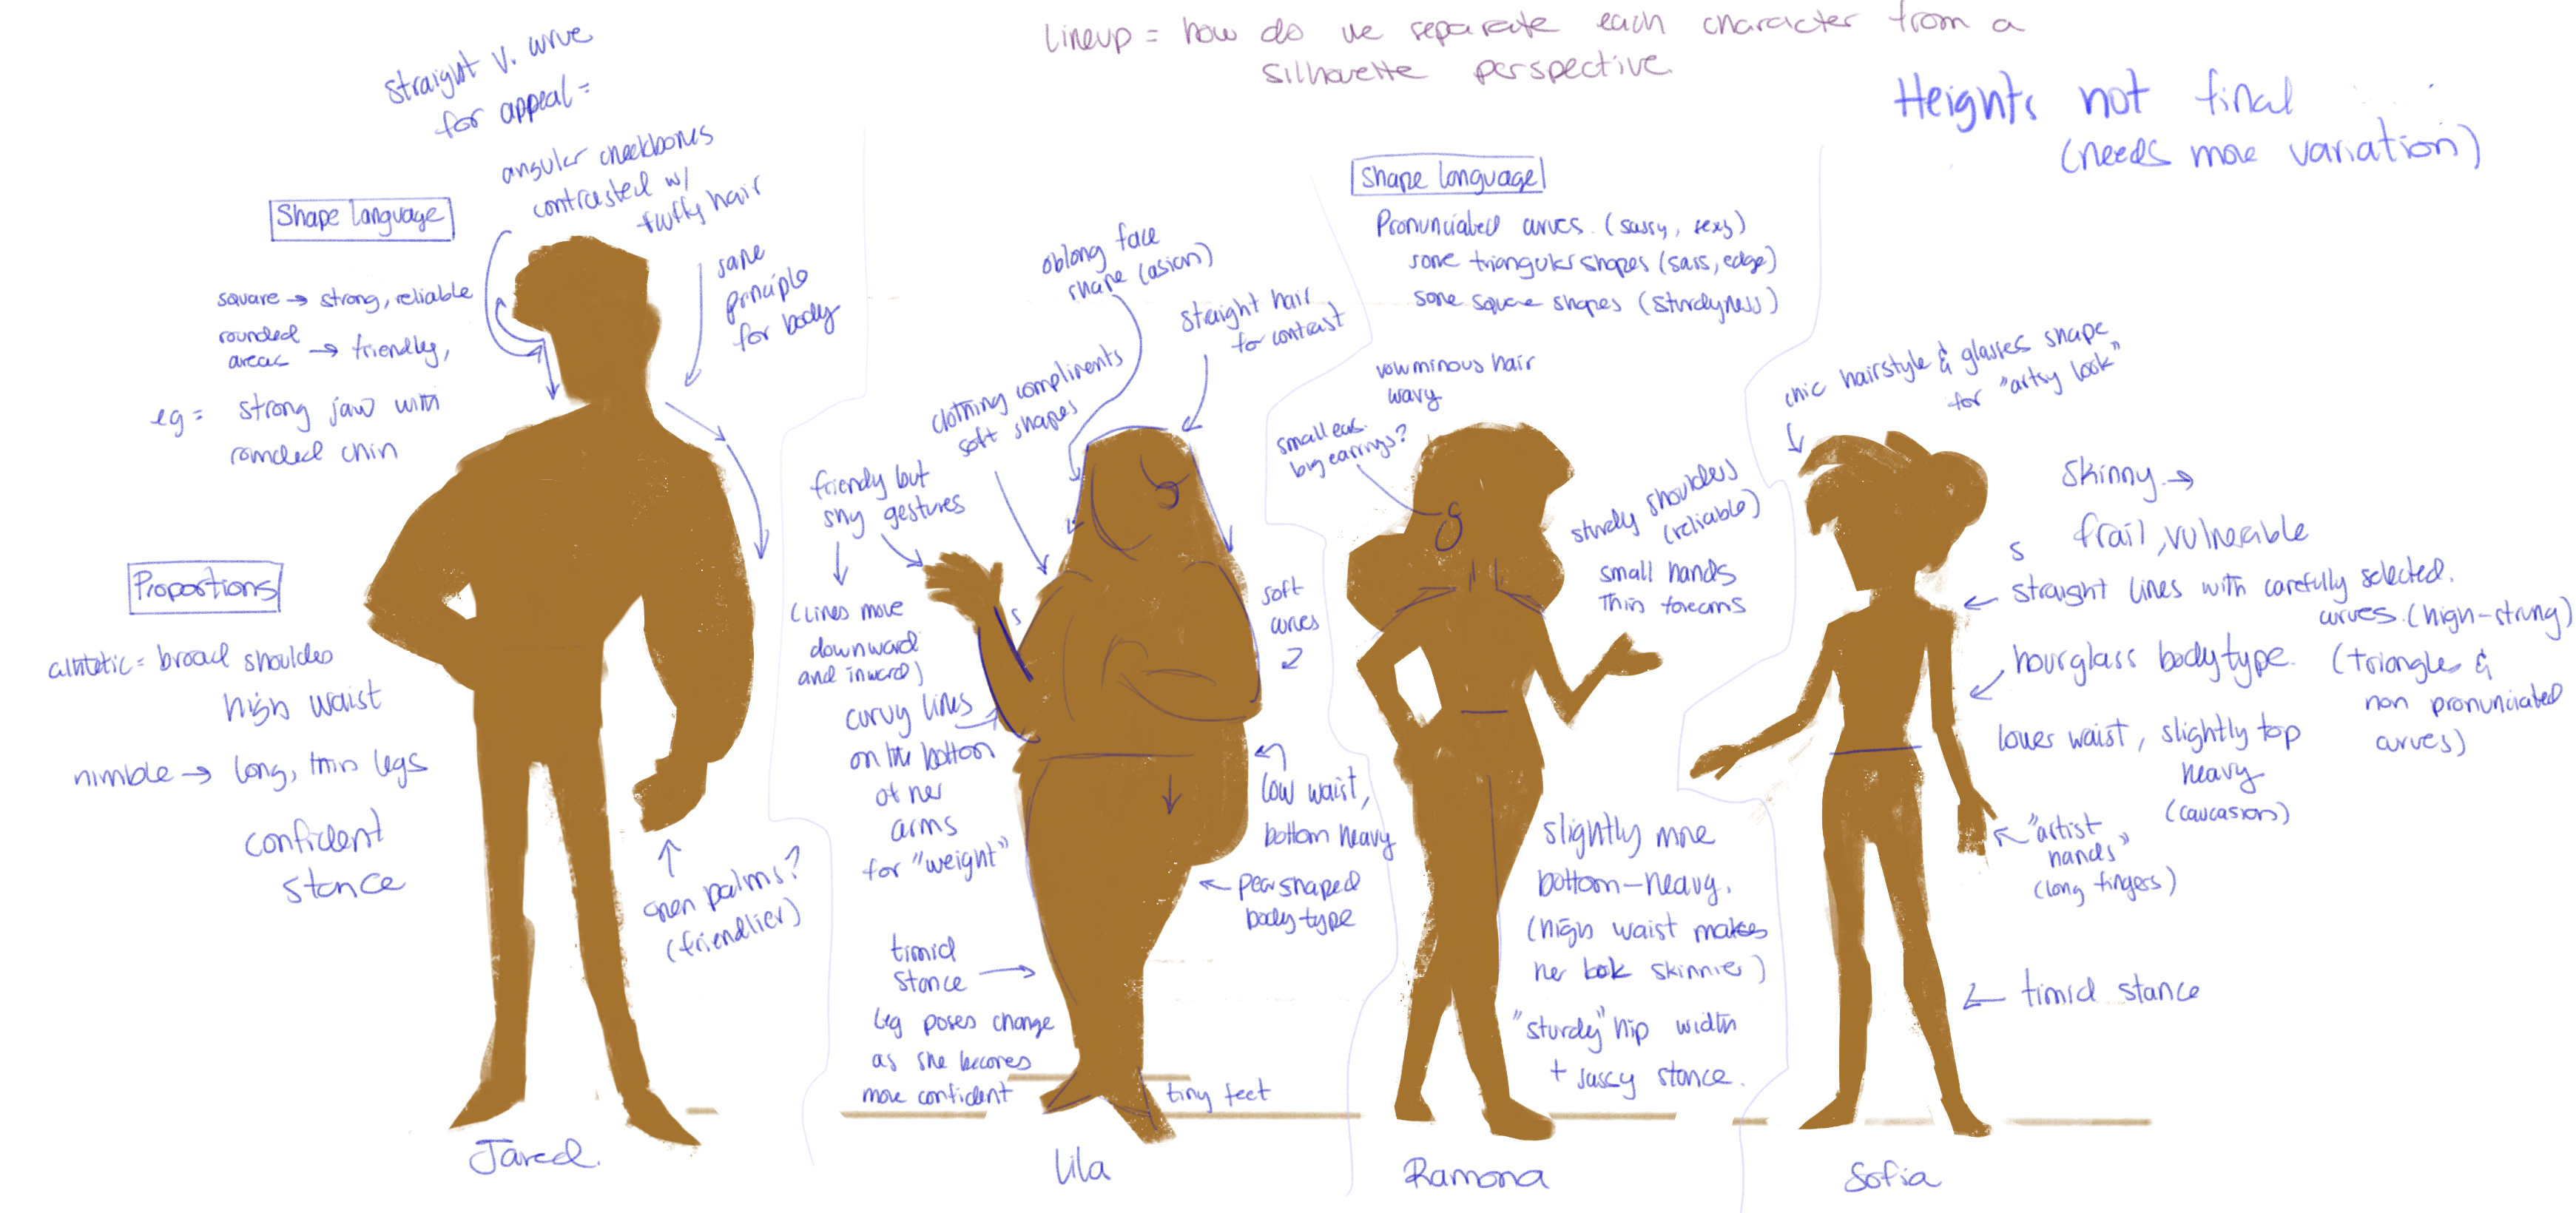 Lineup = how do we separate each character from a
silhouette perspective.
Heights not final
(needs more variation)
straight v. curve
for appeal =
angular cheekbones
contrasted w/
fluffy hair
same
principle
for body
Shape language
square → strong, reliable
rounded
areas → friendly,
eg = strong jaw with
rounded chin
Proportions
athletic = broad shoulders
high waist
nimble → long, thin legs
confident
stance
open palms?
(friendlier)
Jared.
oblong face
shape (asian)
straight hair
for contrast
clothing compliments
soft shapes
friendly but
shy gestures
(lines move
downward
and inward)
S
curvy lines
on the bottom
of her
arms
for "weight"
soft
curves
low waist,
bottom heavy
pear shaped
body type
timid
stance
leg poses change
as she becomes
more confident
tiny feet
Lila
Shape language
Pronunciated curves. (sassy, sexy)
some triangular shapes (sass, edge)
some square shapes (sturdyness)
vowminous hair
wavy
small ears.
big earrings?
sturdy shoulders
(reliable)
small hands
Thin forearms
slightly more
bottom-heavy.
(high waist makes
her look skinnier)
"sturdy" hip width
+ sassy stance.
Ramona
chic hairstyle & glasses shape
for "artsy look"
skinny →
frail, vulnerable
S
straight lines with carefully selected.
curves. (high-strung)
(triangles &
non pronunciated
curves)
hourglass body type.
lower waist, slightly top
heavy
(caucasian)
"artist
hands"
(long fingers)
timid stance
Sofia